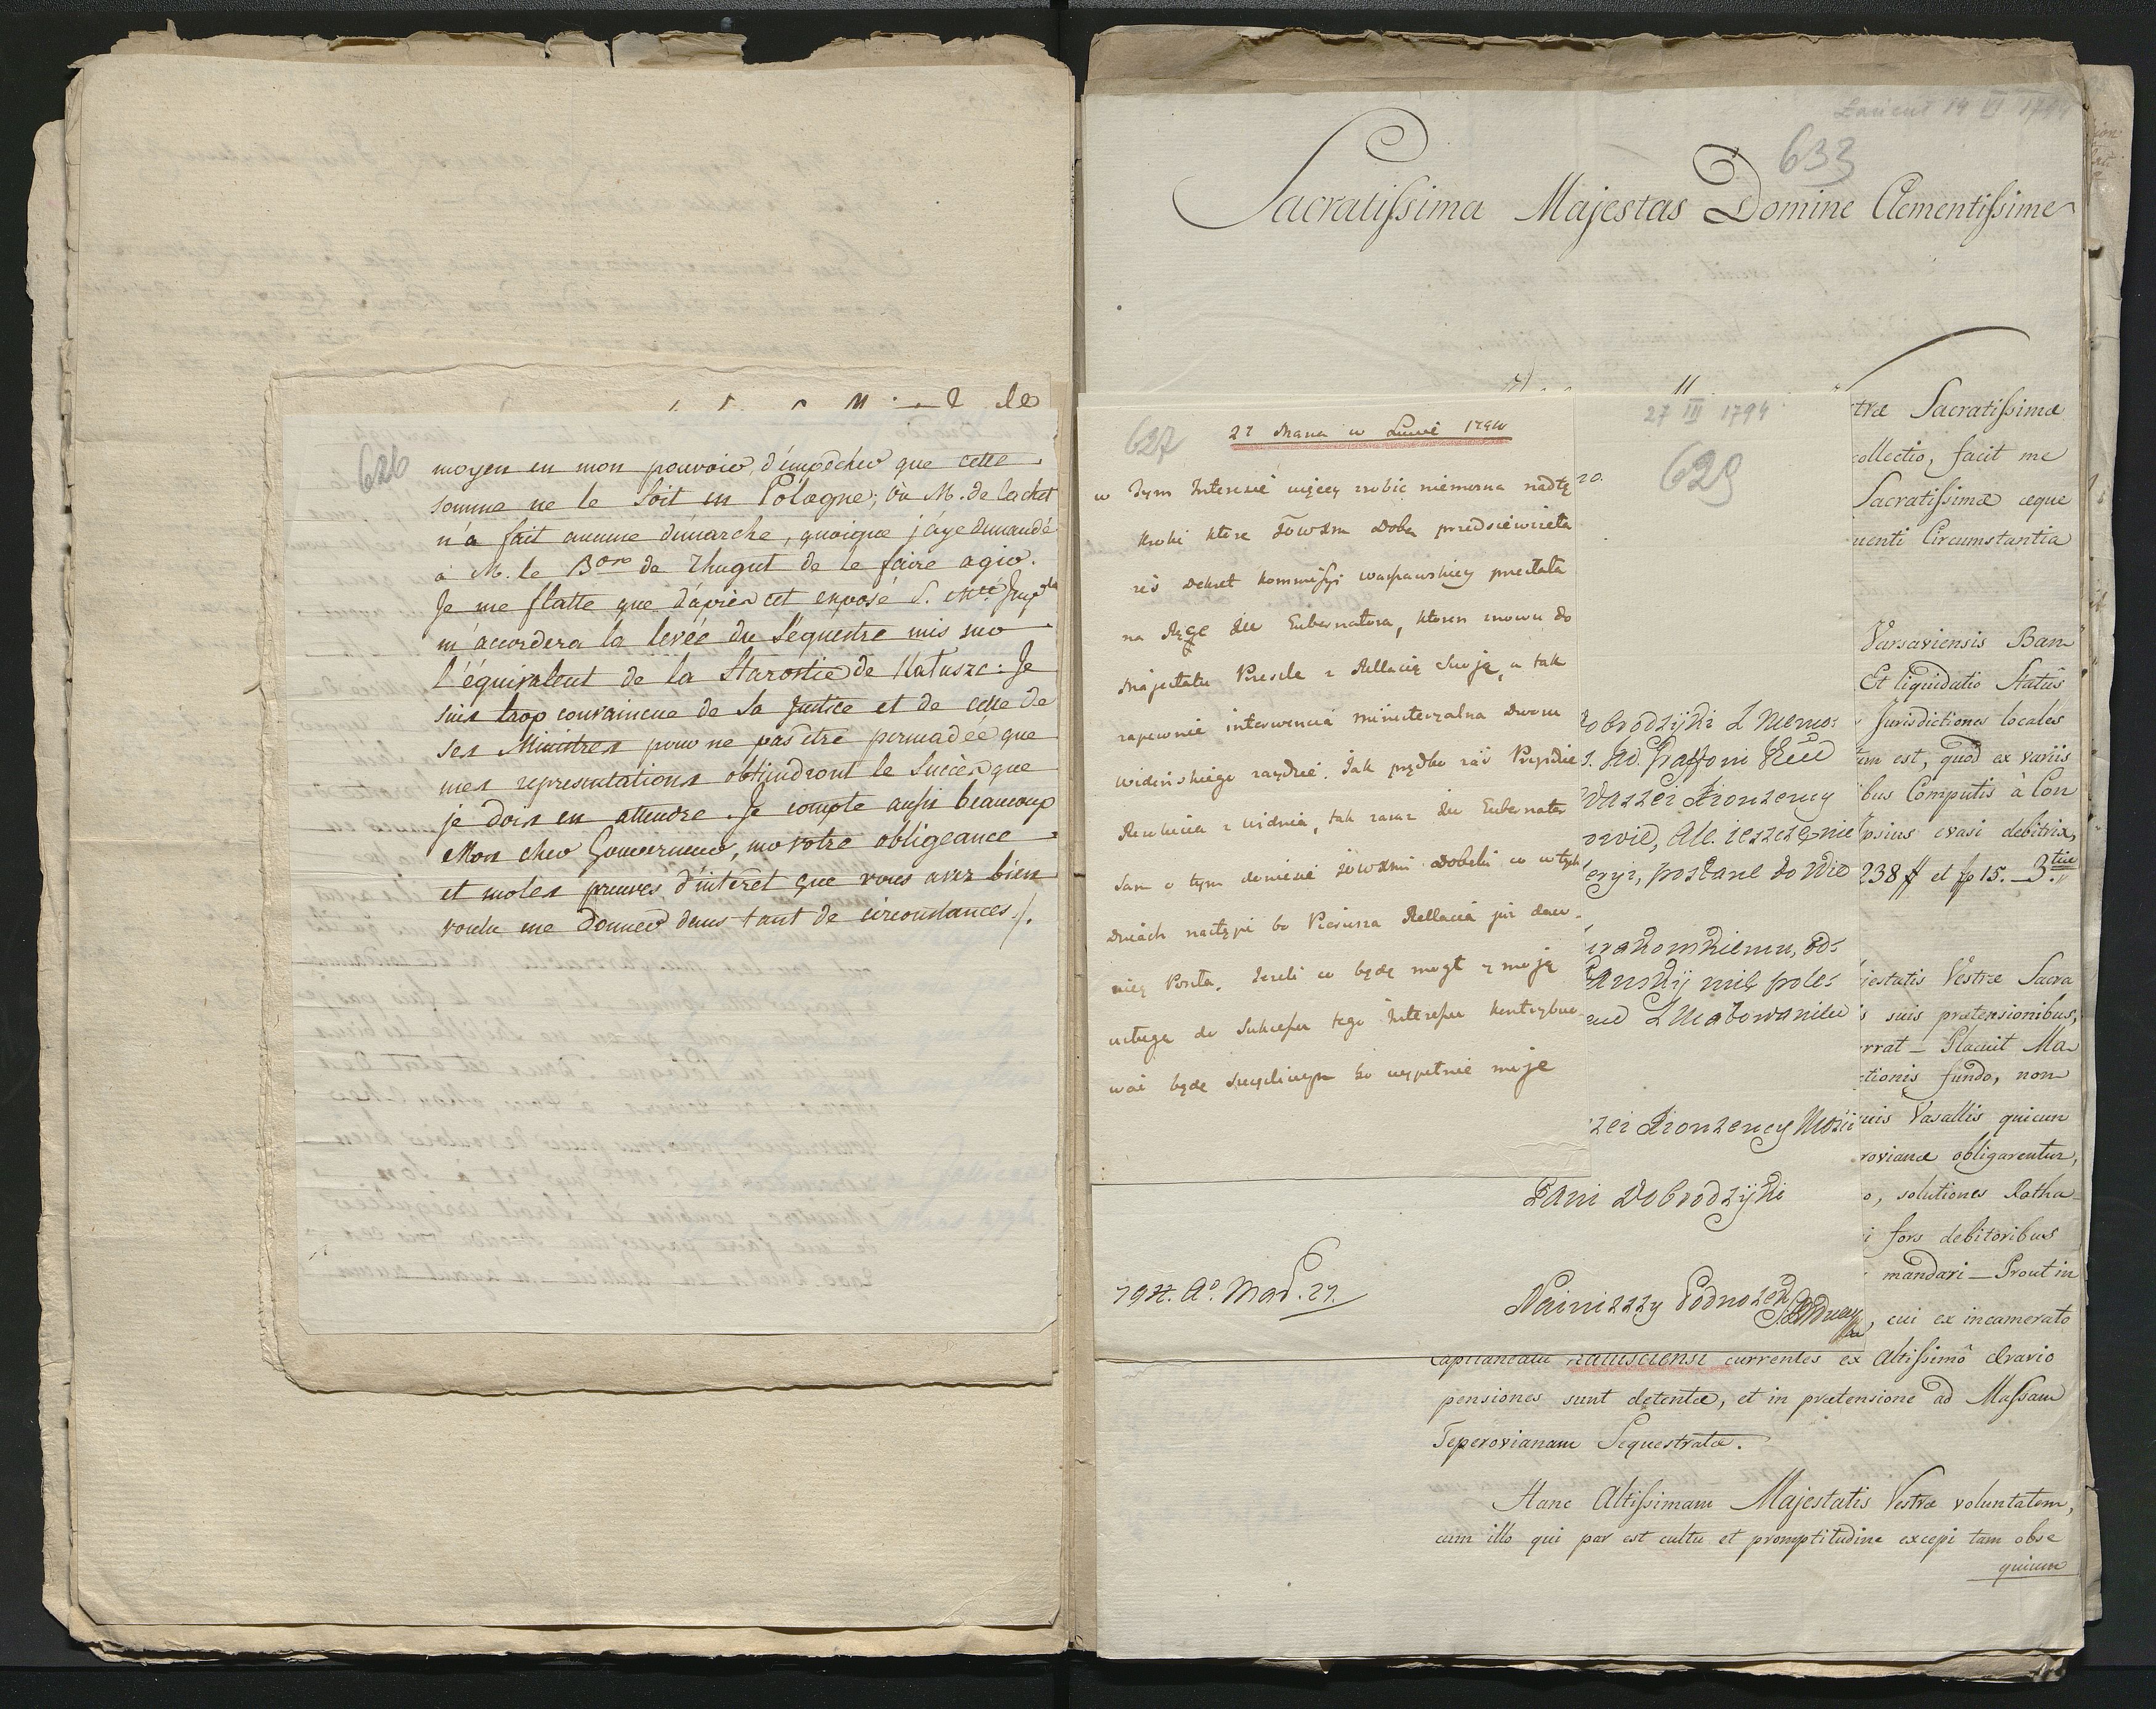 626
moyen en mon pouvoir d'empêcher que cette
somme ne le soit en Pologne; où M. de Cachet
n'a fait aucune démarche, quoique j'aye demandé
à M. le Bon de Thugut de le faire agir.
Je me flatte que d'après cet exposé S. Mté Impla
m'accordera la levée du Séquestre mis sur
l'équivalent de la Starostie de Kałusze: Je
suis trop convaincue de Sa Justice et de celle de
ses Ministres pour ne pas être persuadée que
mes representations obtiendront le Succès que
je dois en attendre. Je compte aussi beaucoup
Mon cher Gouverneur, sur votre obligeance
et sur les preuves d'intérêt que vous avez bien
voulu me donner dans tant de circonstances./.
Łańcut 14 VI 1794
633
Sacratissima Majestas Domine Clementissime
627
27 Marca w Łańcucie 1794
w tym Interesie więcey zrobić niemożna nad te
kroki które JOWXM Dobr. przedsiewzieła
też Dekret Kommissyi warszawskiey przesłała
na Ręce JW Gubernatora, ktoren znowu do
Majestatu Przesłe z Rellacią Swoją, a tak
zapewnie interwencia ministeryalna Dworu
widenskiego zaydzie. Jak prędko zaś Przyidzie
Rezolucia z widnia, tak zaraz JW Gubernator
Sam o tym doniesie JOWXMci Dobrki co w tych
dniach nastąpi bo Pierwsza Rellacia już daw-
niey Poszła. Jezeli co będę mogł z moją
usługą do Sukcessu tego Interessu kontrybuo-
wać będę szczęśliwym bo wypełnie moje
20.
27 III 1794
629
Dobrodzijki z Memo:
waszei Xionzency
orvie, ale ieszcze nie
eryi, postane do Wie
zei Xionzency Mości
Pani Dobrodzijki
Nainizszy Podnozek
794. Ao. Mar. 27.
træ Sacratissimæ
collectio, facit me
Sacratissimæ æque
uenti Circumstantia
Varsaviensis Ban
Et liquidatio Statûs
Jurisdictiones locales
um est, quod ex variis
bus Computis à Con
psius evasi debitrix,
238 ff et fp 15. 3.tiæ
jestatis Vestræ Sacra
s suis prætensionibus,
rrat – Placuit Ma
ctionis fundo, non
uis Vasallis quicun
roviana obligarentur,
o, solutiones Ratha
i fors debitoribus
mandari – Prout in
, cui ex incamerato
Capitaneatu Kalusciensi currentes ex Altissimô Ærario
pensiones sunt detentæ, et in prætensione ad Massam
Teperovianam Sequestratæ.
Hanc Altissimam Majestatis Vestræ voluntatem,
cum illo qui par est cultu et promptitudine excepi tam obse
quium